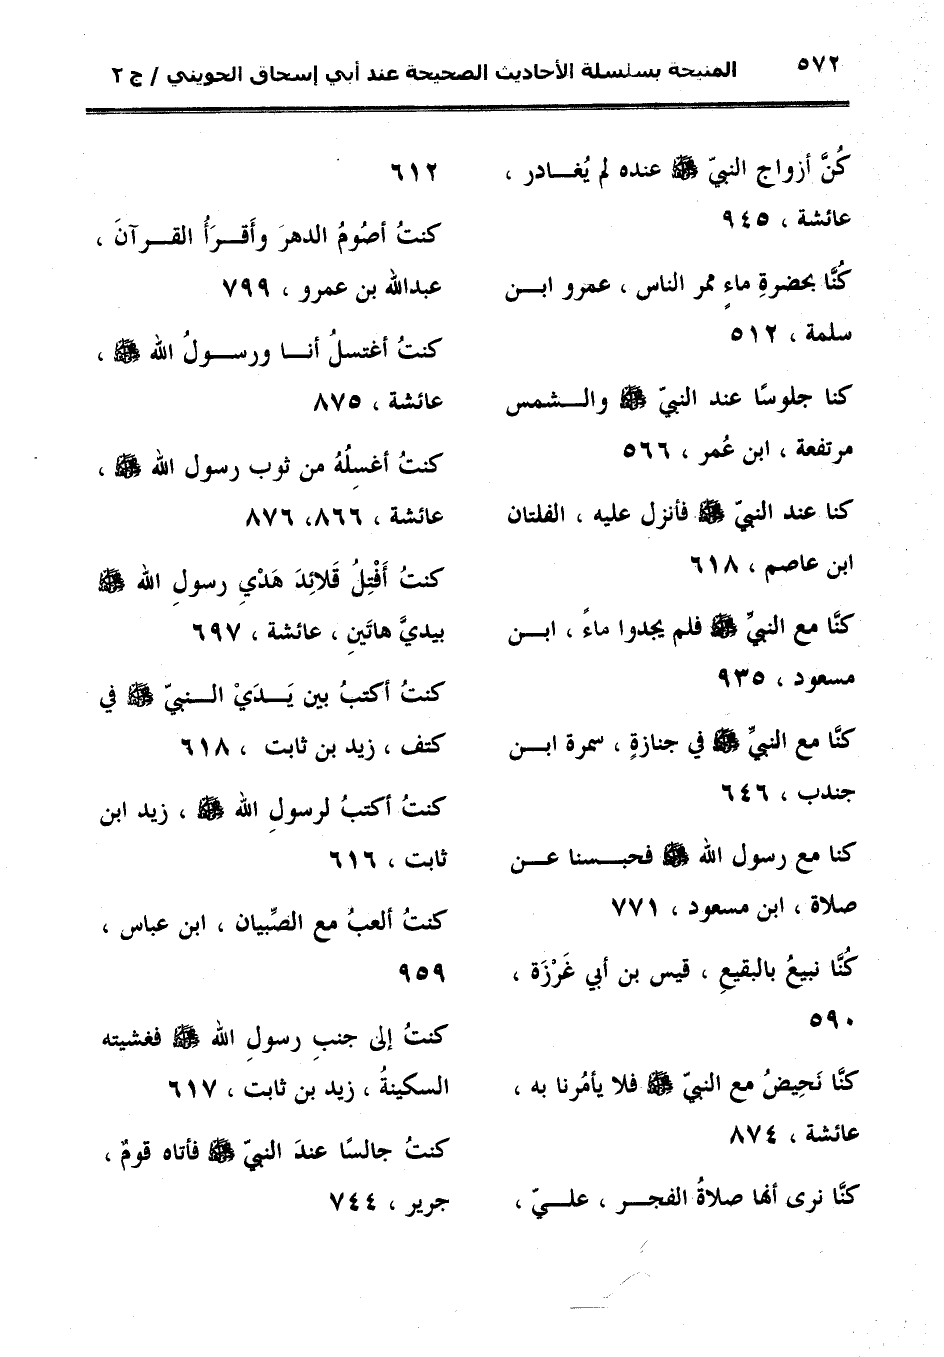 ٥٧٢
المنيحة بسلسلة الأحاديث الصحيحة عند أبي إسحاق الحويني / ج ٢
كُنَّ أزواج النبيّ ﷺ عنده لم يُغـادر ،
عائشة ، ٩٤٥
كُنَّا بحضرةِ ماءٍ ممر الناس ، عمرو ابـن
سلمة ، ٥١٢
كنا جلوسًا عند النبيّ ﷺ والـشمس
مرتفعة ، ابن عُمر ، ٥٦٦
كنا عند النبيّ ﷺ فأنزل عليه ، الفلتان
ابن عاصم ، ٦١٨
كنَّا مع النبيِّ ﷺ فلم يجدوا ماءً ، ابـن
مسعود ، ٩٣٥
كنَّا مع النبيِّ ﷺ في جنازةٍ ، سمرة ابـن
جندب ، ٦٤٦
كنا مع رسول الله ﷺ فحبـسنا عـن
صلاة ، ابن مسعود ، ٧٧١
كُنَّا نبيعُ بالبقيعِ ، قيس بن أبي غَرْزَة ،
٥٩٠
كنَّا نَحِيضُ مع النبيّ ﷺ فلا يأمُرنا به ،
عائشة ، ٨٧٤
كنَّا نرى أنها صلاةُ الفجـر ، علـيّ ،
٦١٢
كنتُ أصُومُ الدهرَ وأَقـرَأُ القـرآنَ ،
عبدالله بن عمرو ، ٧٩٩
كنتُ أغتسلُ أنـا ورسـولُ الله ﷺ ،
عائشة ، ٨٧٥
كنتُ أغسِلُهُ من ثوب رسول الله ﷺ ،
عائشة ، ٨٦٦، ٨٧٦
كنتُ أَفْتِلُ قَلائِدَ هَدْيِ رسولِ الله ﷺ
بيديَّ هاتَينِ ، عائشة ، ٦٩٧
كنتُ أكتبُ بين يَـدَيْ الـنبيّ ﷺ في
كتف ، زيد بن ثابت ، ٦١٨
كنتُ أكتبُ لرسولِ الله ﷺ ، زيد ابن
ثابت ، ٦١٦
كنتُ ألعبُ مع الصِّبيان ، ابن عباس ،
٩٥٩
كنتُ إلى جنبِ رسولِ الله ﷺ فغشيته
السكينةُ ، زيد بن ثابت ، ٦١٧
كنتُ جالسًا عندَ النبيّ ﷺ فأتاه قومٌ ،
جرير ، ٧٤٤